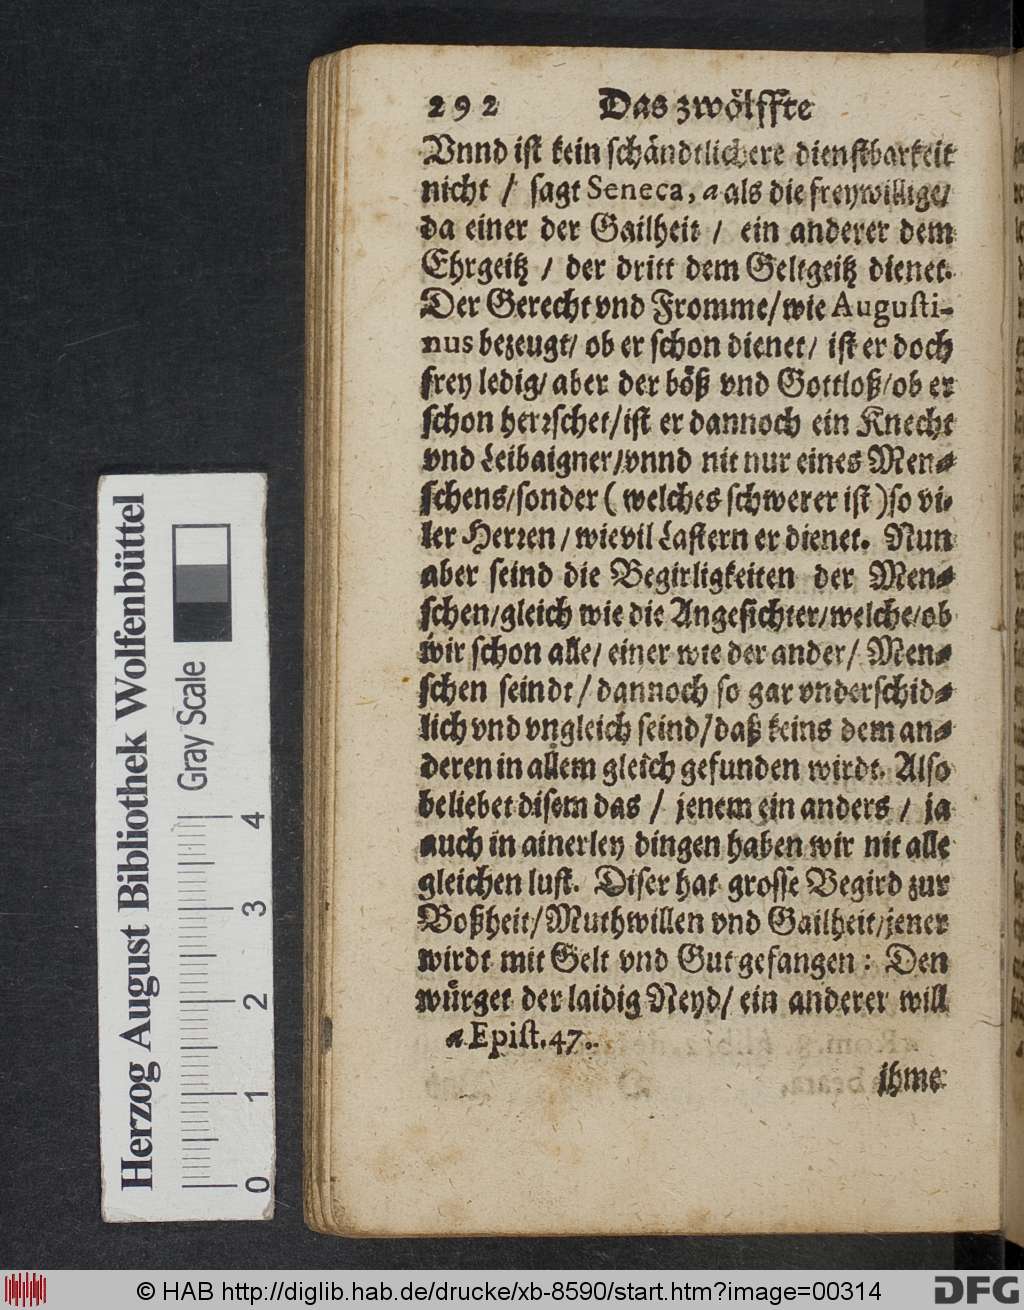 292 Das zwölffte
Vnnd ist kein schändtlichere dienstbarkeit
nicht / sagt Seneca, a als die freywillige/
da einer der Gailheit / ein anderer dem
Ehrgeitz / der dritt dem Geltgeitz dienet.
Der Gerecht vnd Fromme/wie Augusti-
nus bezeugt/ ob er schon dienet/ ist er doch
frey ledig/ aber der böß vnd Gottloß/ob er
schon herrschet/ist er dannoch ein Knecht
vnd Leibaigner/vnnd nit nur eines Men-
schens/sonder ( welches schwerer ist )so vi-
ler Herren / wievil Lastern er dienet. Nun
aber seind die Begirligkeiten der Men-
schen/gleich wie die Angesichter/welche/ob
wir schon alle/ einer wie der ander/ Men-
schen seindt/ dannoch so gar vnderschid-
lich vnd vngleich seind/daß keins dem an-
deren in allem gleich gefunden wirdt. Also
beliebet disem das / jenem ein anders / ja
auch in ainerley dingen haben wir nit alle
gleichen lust. Diser hat grosse Begird zur
Boßheit/Muthwillen vnd Gailheit/jener
wirdt mit Gelt vnd Gut gefangen: Den
würget der laidig Neyd/ ein anderer will
a Epist. 47.
ihme
Herzog August Bibliothek Wolfenbüttel
Gray Scale
0 1 2 3 4
© HAB http://diglib.hab.de/drucke/xb-8590/start.htm?image=00314
DFG